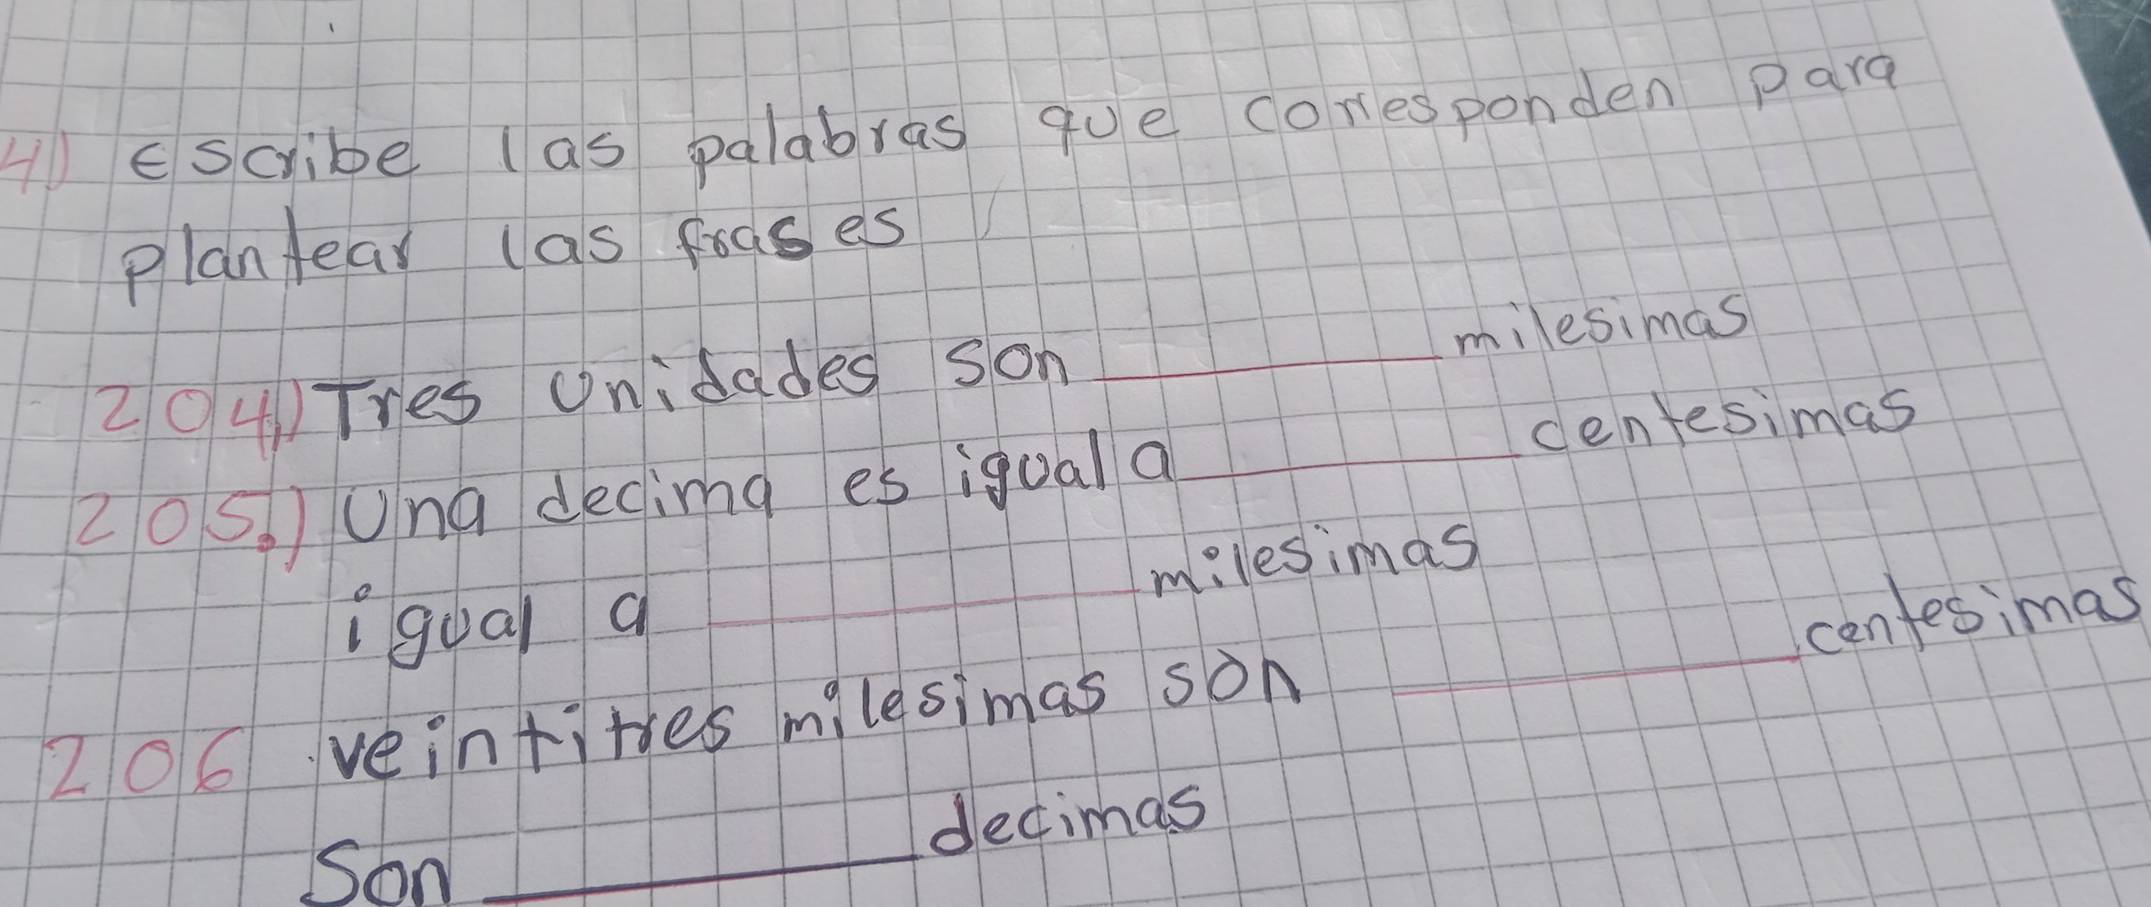 4) Escribe las palabras que corresponden para
plantear las frases
204.) Tres unidades son ________ milesimas
205.) Una decima es igual a ________ centesimas
igual a ________ milesimas
206 veintitres milesimas son ________ centesimas
Son ________ decimas